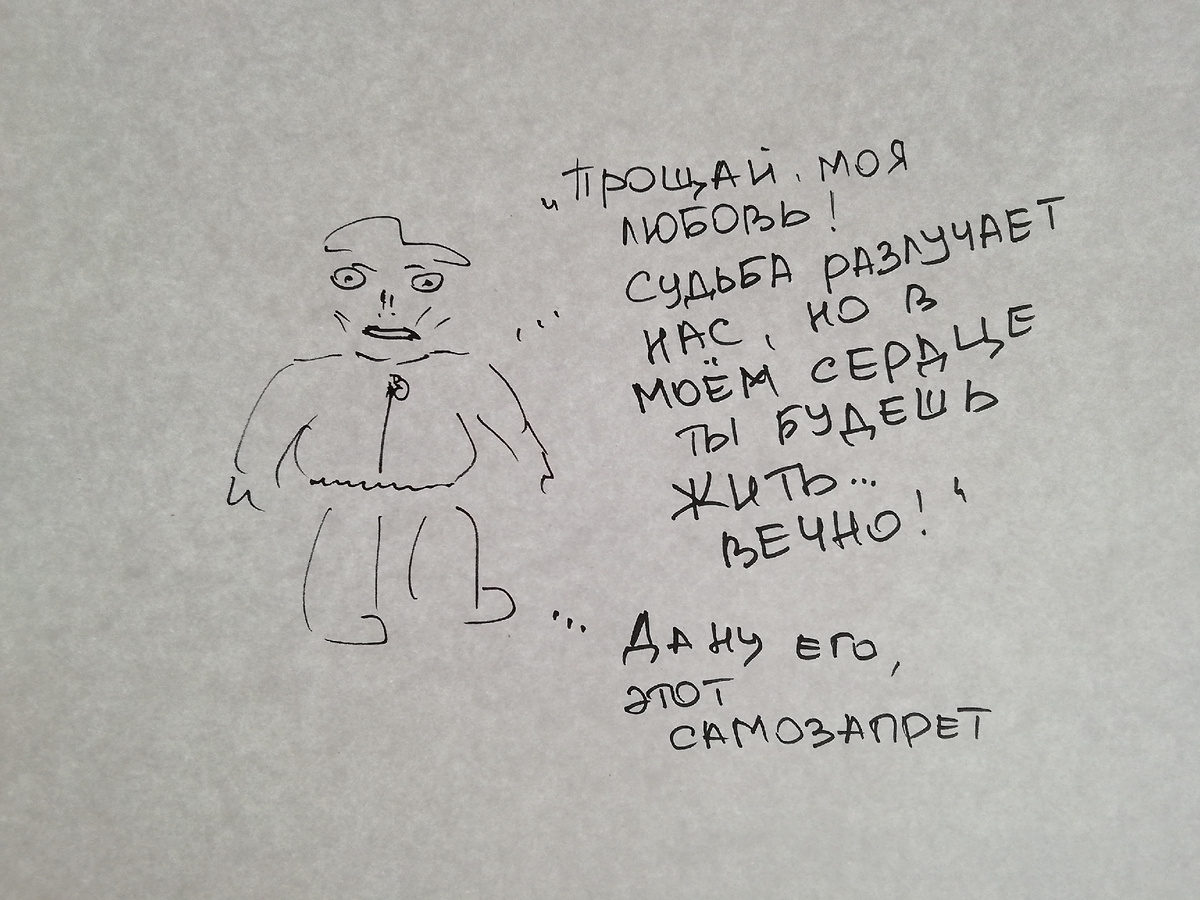 „Прощай, моя
любовь!
Судьба разлучает
нас, но в
моём сердце
ты будешь
жить...
вечно!“
... Да ну его,
этот
самозапрет